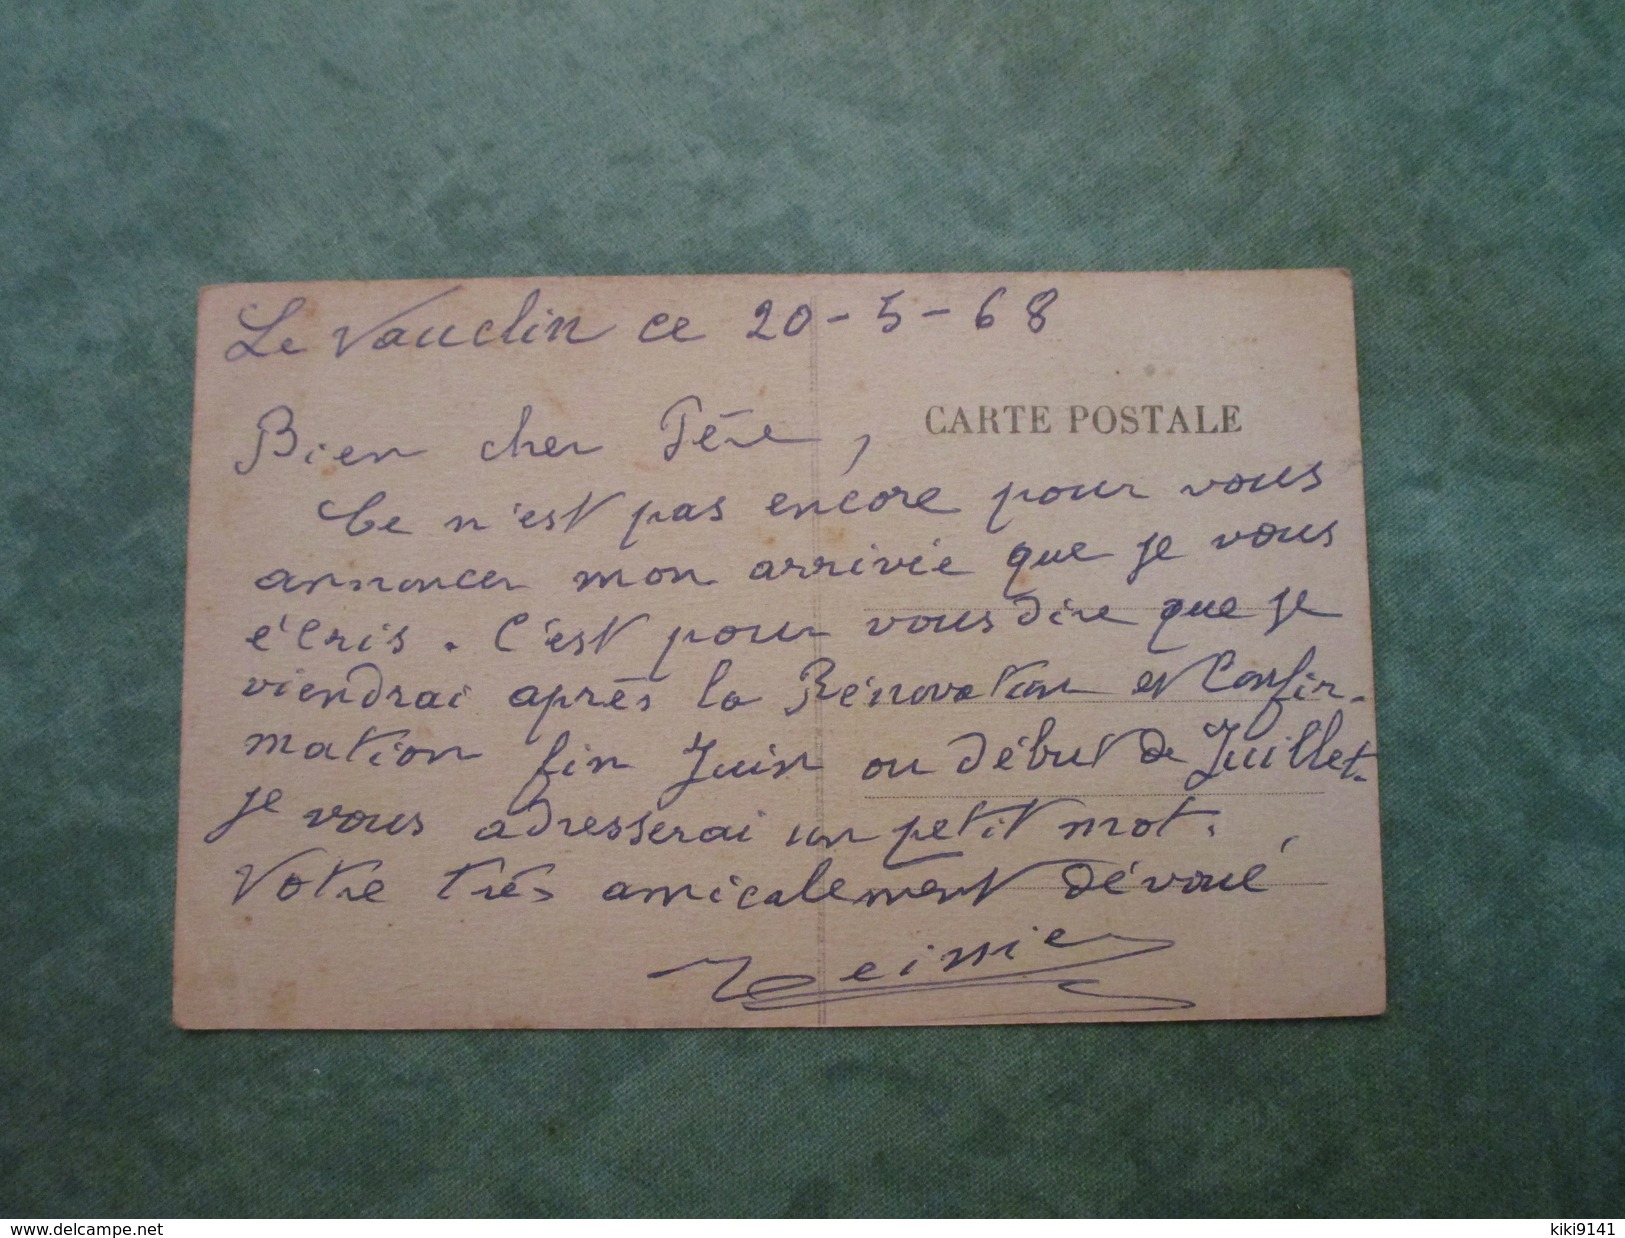 Le Vauclin ce 20-5-68
CARTE POSTALE
Bien cher Père,
Ce n'est pas encore pour vous
annoncer mon arrivée que je vous
écris. C'est pour vous dire que je
viendrai après la Rénovation et Confir-
mation fin Juin ou début de Juillet.
je vous adresserai un petit mot.
Votre très amicalement dévoué
www.delcampe.net
kiki9141